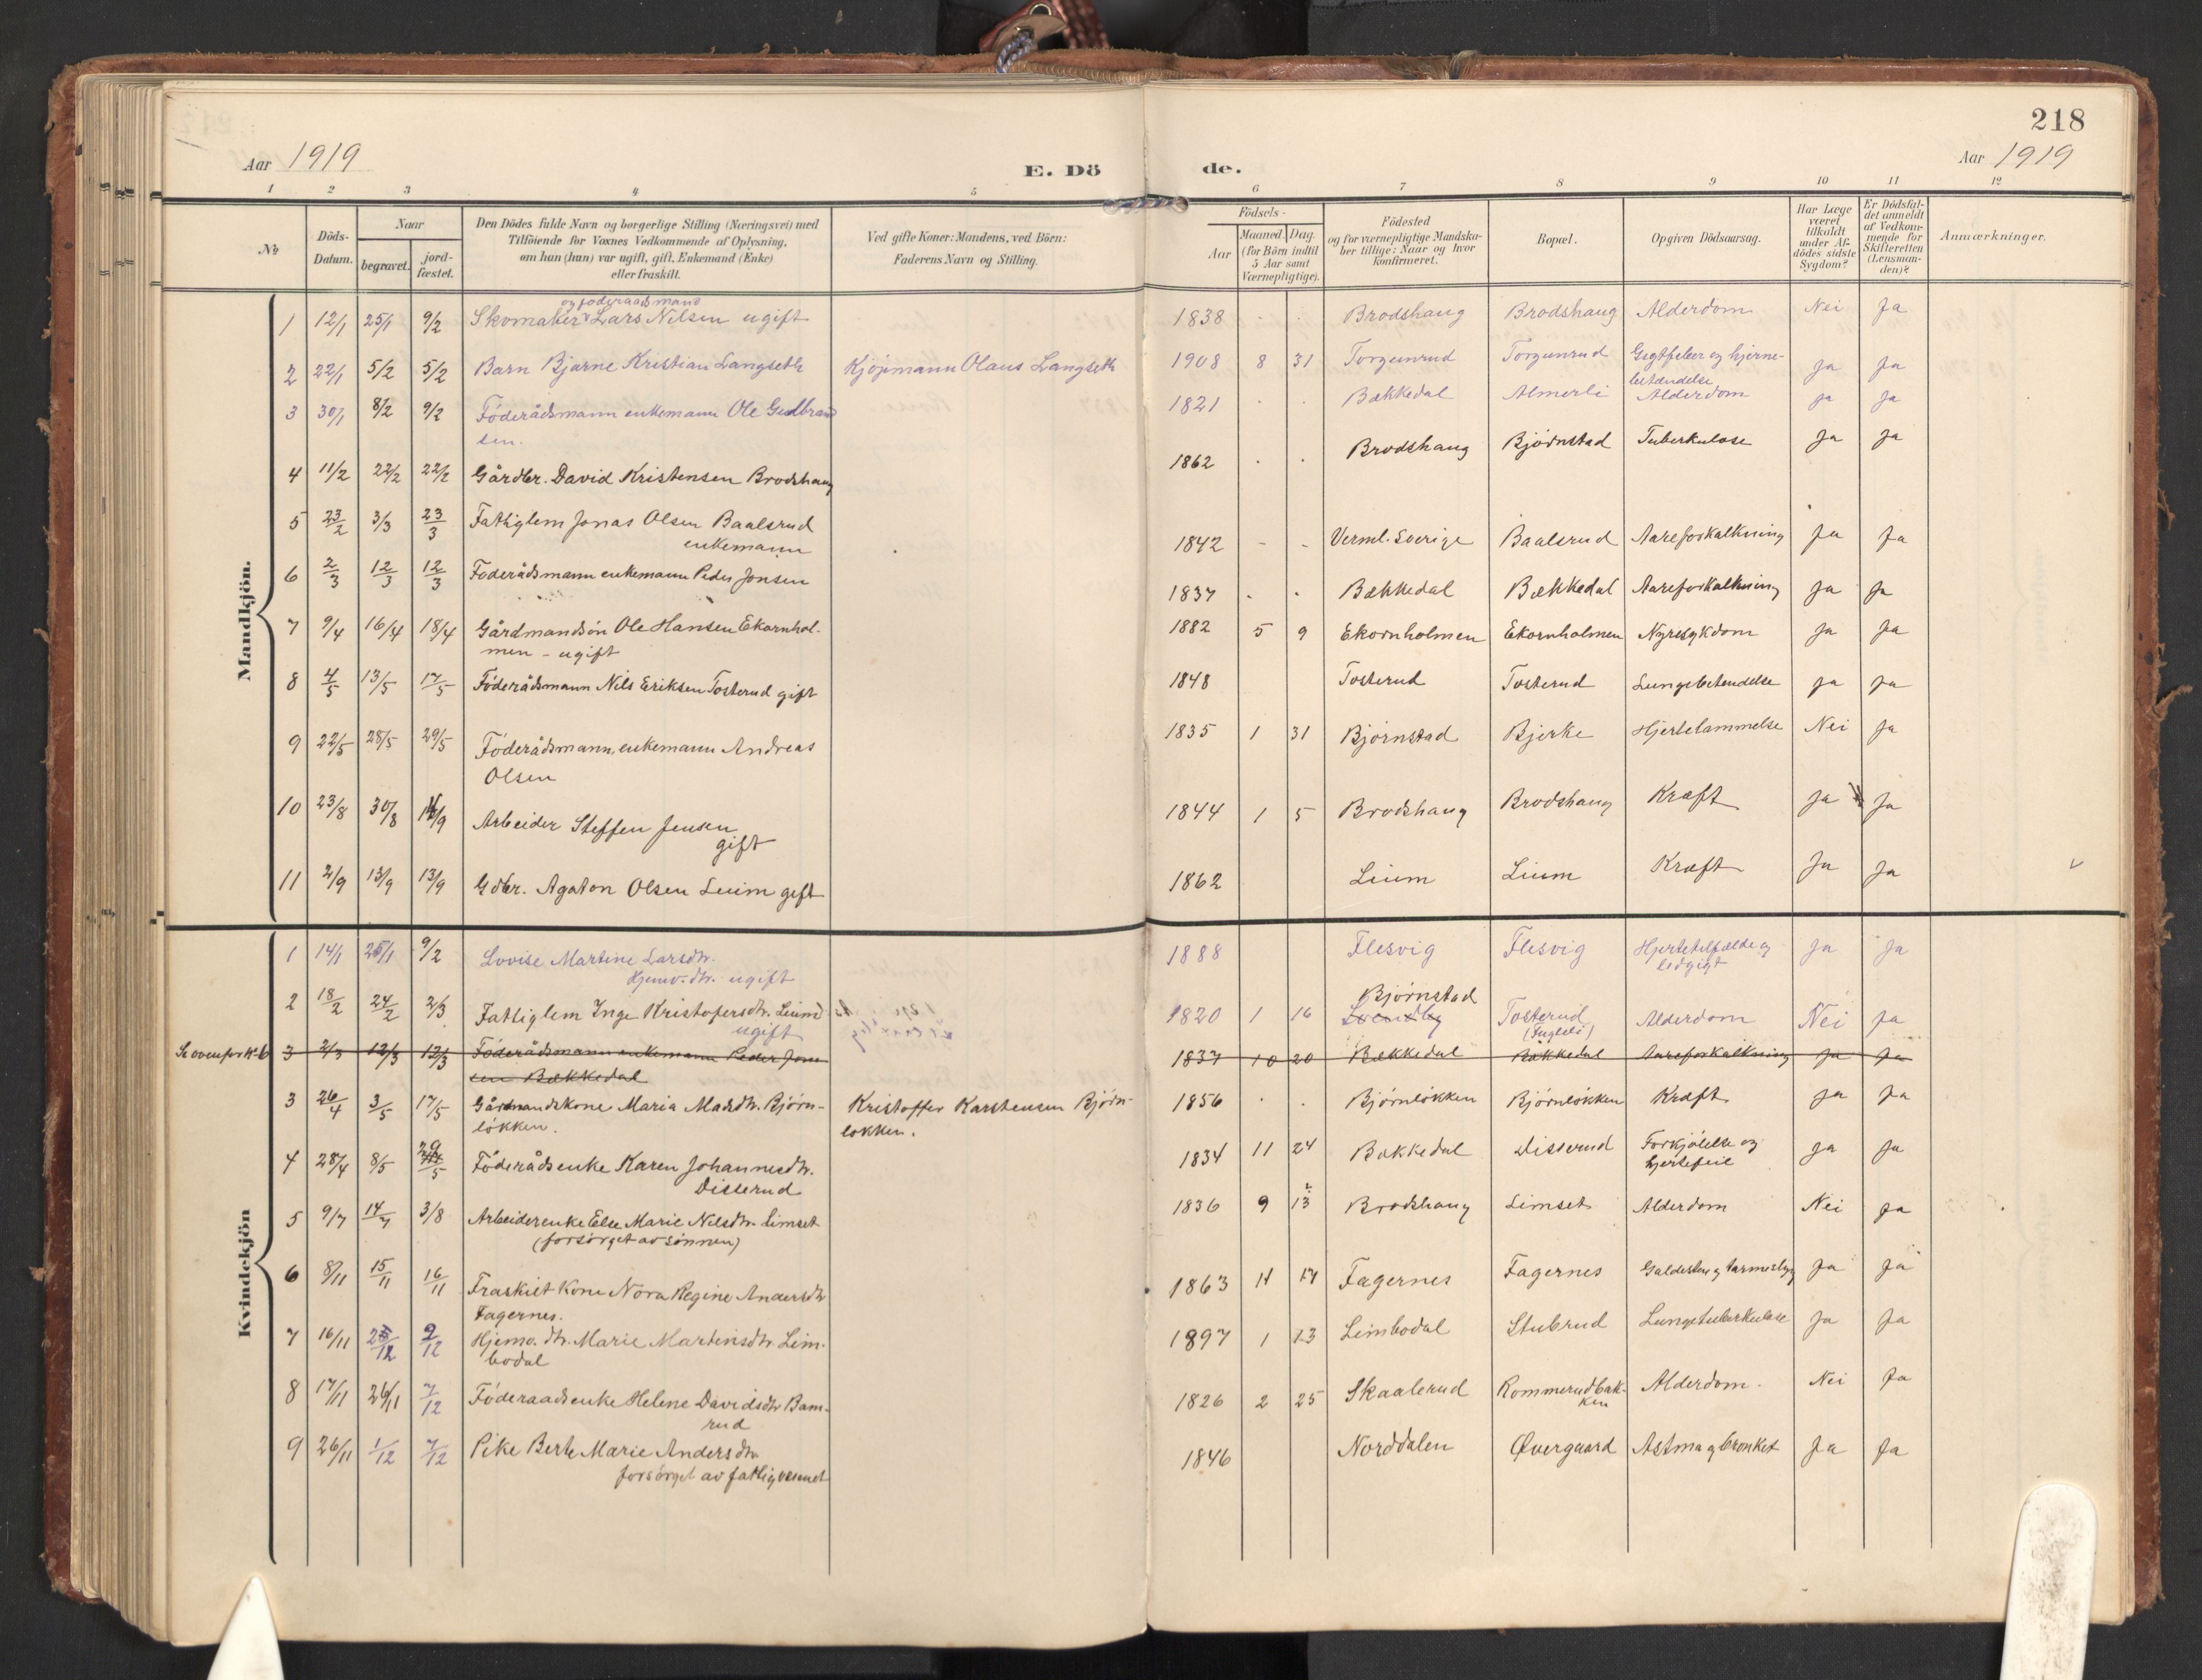 218
Aar 1919
E. Dö
de.
Aar 1919
1 2 3 4 5 6 7 8 9 10 11 12
No.
Döds-
Datum.
Naar
begravet.
jord-
fæstet.
Den Dödes fulde Navn og borgerlige Stilling (Næringsvei) med
Tilföiende for Voxnes Vedkommende af Oplysning,
om han (hun) var ugift, gift, Enkemand (Enke)
eller fraskilt.
Ved gifte Koner: Mandens, ved Börn:
Faderens Navn og Stilling.
Födsels-
Aar
Maaned. Dag.
(for Börn indtil
5 Aar samt
Værnepligtige).
Födested
og for værnepligtige Mandska-
ber tillige: Naar og hvor
konfirmeret.
Bopæl.
Opgiven Dödsaarsag.
Har Læge
været
tilkaldt
under Af-
dödes sidste
Sygdom?
Er Dödsfal-
det anmeldt
af Vedkom-
mende for
Skifteretten
(Lensman-
den)?
Anmærkninger.
Mandkjön.
og föderaadsmand
1 12/1 25/1 9/2 Skomaker Lars Nilsen ugift 1838 . . Brodshaug Brodshaug Alderdom Nei Ja
2 22/1 5/2 5/2 Barn Bjarne Kristian Langseth Kjöpmann Olaus Langseth 1908 8 31 Torgunrud Torgunrud Gigtfeber og hjerne-
betændelse Ja Ja
3 30/1 8/2 9/2 Föderådsmann enkemann Ole Gudbrand
sen. 1821 . . Bækkedal Almerli Alderdom Ja Ja
4 11/2 22/2 22/2 Gårdbr. David Kristensen Brodshaug 1862 . . Brodshaug Bjørnstad Tuberkulose Ja Ja
5 23/2 3/3 23/3 Fattiglem Jonas Olsen Baalsrud
enkemann 1842 - - Verml. Sverige Baalsrud Aareforkalkning Ja Ja
6 2/3 12/3 12/3 Föderådsmann enkemann Peder Jonsen 1837 . . Bækkedal Bækkedal Aareforkalkning Ja Ja
7 9/4 16/4 18/4 Gårdmandsön Ole Hansen Ekornhol-
men - ugift 1882 5 9 Ekornholmen Ekornholmen Nyresykdom Ja Ja
8 4/5 13/5 17/5 Föderådsmann Nils Eriksen Tosterud gift 1848 Tosterud Tosterud Lungebetendelse Ja Ja
9 22/5 28/5 29/5 Föderådsmann, enkemann Andreas
Olsen 1835 1 31 Bjørnstad Bjerke Hjertelammelse Nei Ja
10 23/8 30/8 /9 Arbeider Steffen Jensen
gift 1844 1 5 Brodshaug Brodshaug Kræft Ja Ja
11 2/9 13/9 13/9 Gdbr. Agaton Olsen Lium gift 1862 Lium Lium Kræft Ja Ja
Kvindekjön
1 14/1 25/1 9/2 Lovise Martine Larsdtr.
Hjemv. dtr. ugift 1888 Flesvig Flesvig Hjertetilfælde og
ledgigt Ja Ja
2 18/2 24/2 2/3 Fattiglem Inge Kristofersdtr. Lium
ugift 1820 1 16 Bjørnstad
Tosterud
Alderdom Nei Ja
Se ovenfor No 6 3 2/3 12/3 12/3 Föderådsmann enkemann Peder Jon-
sen Bækkedal 1837 10 20 Bækkedal Bækkedal Aareforkalkning Ja Ja
3 26/4 3/5 17/5 Gårdmandskone Maria Madsdtr. Bjørn-
løkken. Kristoffer Karstensen Bjørn-
løkken. 1856 . . Bjørnløkken Bjørnløkken Kræft Ja Ja
4 28/4 8/5 29/5 Föderådsenke Karen Johannesdtr.
Disserud 1834 11 24 Bækkedal Disserud Forkjølelse og
hjertefeil Ja Ja
5 9/7 14/7 3/8 Arbeiderenke Else Marie Nilsdtr. Limset
(forsörget av sønnen) 1836 9 13 Brodshaug Limset Alderdom Nei Ja
6 8/11 15/11 16/11 Fraskilt kone Nora Regine Andersdtr
Fagernes. 1863 11 17 Fagernes Fagernes Galdesten og tarmeslyng Ja Ja
7 16/11 /12 2/12 Hjemv. dtr. Marie Martinsdtr. Lim-
bodal 1897 1 13 Limbodal Stubrud Lungetuberkulose Ja Ja
8 17/11 26/11 7/12 Föderaadsenke Helene Davidsdtr Bam-
rud 1826 2 25 Skaalerud Kommerudbak-
ken Alderdom. Nei Ja
9 26/11 1/12 7/12 Pike Berte Marie Andersdtr
forsörget av fattigvesenet 1846 Norddalen Øvergaard Astma og bronkit Ja Ja